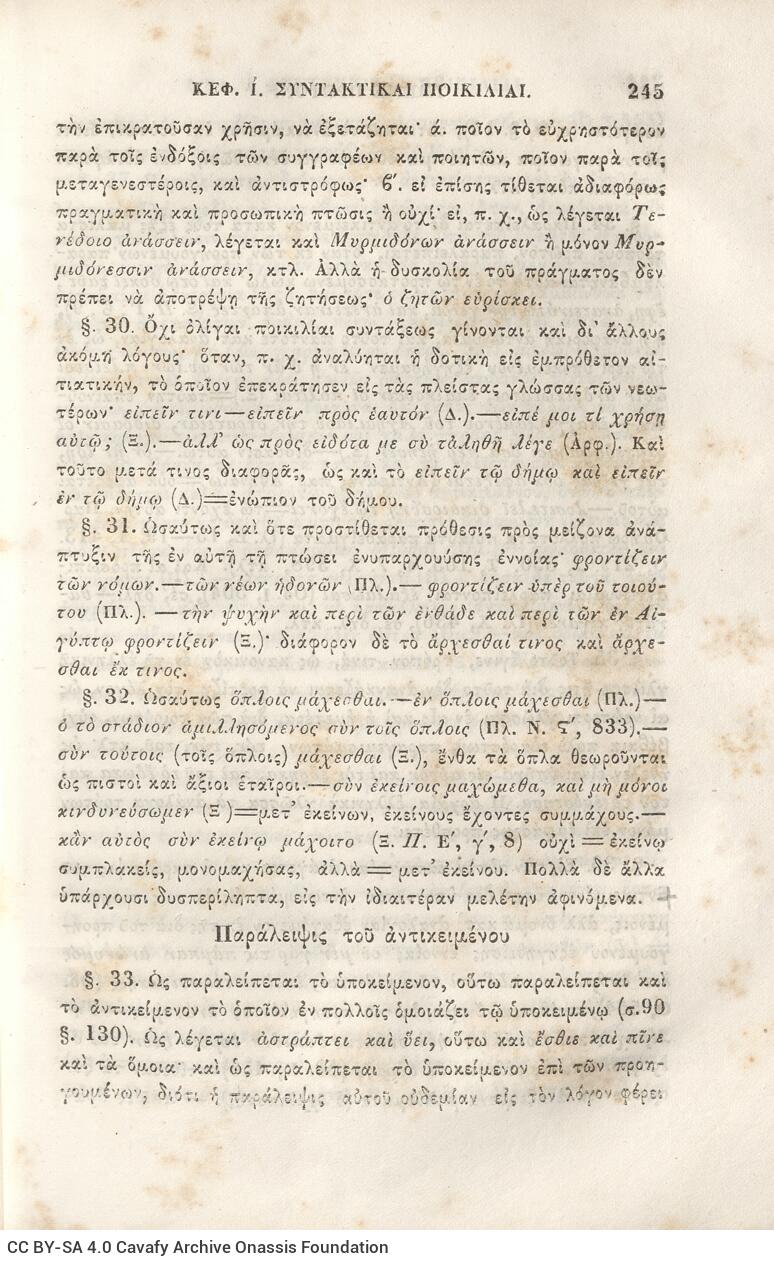 ΚΕΦ. Ι΄. ΣΥΝΤΑΚΤΙΚΑΙ ΠΟΙΚΙΛΙΑΙ. 245
τὴν ἐπικρατοῦσαν χρῆσιν, νὰ ἐξετάζηται· ά. ποῖον τὸ εὐχρηστότερον
παρὰ τοῖς ἐνδόξοις τῶν συγγραφέων καὶ ποιητῶν, ποῖον παρὰ τοῖς
μεταγενεστέροις, καὶ ἀντιστρόφως· ϐ′. εἰ ἐπίσης τίθεται ἀδιαφόρως
πραγματικὴ καὶ προσωπικὴ πτῶσις ἢ οὐχί· εἰ, π. χ., ὡς λέγεται Τε-
νέδοιο ἀνάσσειν, λέγεται καὶ Μυρμιδόνων ἀνάσσειν ἢ μόνον Μυρ-
μιδόνεσσιν ἀνάσσειν, κτλ. Ἀλλὰ ἡ δυσκολία τοῦ πράγματος δὲν
πρέπει νὰ ἀποτρέψῃ τῆς ζητήσεως· ὁ ζητῶν εὑρίσκει.
§. 30. Ὄχι ὀλίγαι ποικιλίαι συντάξεως γίνονται καὶ δι' ἄλλους
ἀκόμη λόγους· ὅταν, π. χ. ἀναλύηται ἡ δοτικὴ εἰς ἐμπρόθετον αἰ-
τιατικήν, τὸ ὁποῖον ἐπεκράτησεν εἰς τὰς πλείστας γλώσσας τῶν νεω-
τέρων· εἰπεῖν τινι—εἰπεῖν πρὸς ἑαυτόν (Δ.).—εἰπέ μοι τί χρήσῃ
αὐτῷ; (Ξ.).—ἀλλ' ὡς πρὸς εἰδότα με σὺ τἀληθῆ λέγε (Ἀρφ.). Καὶ
τοῦτο μετά τινος διαφορᾶς, ὡς καὶ τὸ εἰπεῖν τῷ δήμῳ καὶ εἰπεῖν
ἐν τῷ δήμῳ (Δ.)=ἐνώπιον τοῦ δήμου.
§. 31. Ὡσαύτως καὶ ὅτε προστίθεται πρόθεσις πρὸς μείζονα ἀνά-
πτυξιν τῆς ἐν αὐτῇ τῇ πτώσει ἐνυπαρχούσης ἐννοίας· φροντίζειν
τῶν νόμων.—τῶν νέων ἡδονῶν (Πλ.).— φροντίζειν ὑπὲρ τοῦ τοιού-
του (Πλ.). —τὴν ψυχὴν καὶ περὶ τῶν ἐνθάδε καὶ περὶ τῶν ἐν Αἰ-
γύπτῳ φροντίζειν (Ξ.)· διάφορον δὲ τὸ ἄρχεσθαί τινος καὶ ἄρχε-
σθαι ἔκ τινος.
§. 32. Ὡσαύτως ὅπλοις μάχεσθαι.—ἐν ὅπλοις μάχεσθαι (Πλ.)—
ὁ τὸ στάδιον ἁμιλλησόμενος σὺν τοῖς ὅπλοις (Πλ. Ν. Ϛ′, 833).—
σὺν τούτοις (τοῖς ὅπλοις) μάχεσθαι (Ξ.), ἔνθα τὰ ὅπλα θεωροῦνται
ὡς πιστοὶ καὶ ἄξιοι ἑταῖροι.—σὺν ἐκείνοις μαχώμεθα, καὶ μὴ μόνοι
κινδυνεύσωμεν (Ξ )=μετ' ἐκείνων, ἐκείνους ἔχοντες συμμάχους.—
κἂν αὐτὸς σὺν ἐκείνῳ μάχοιτο (Ξ. Π. Ε′, γ′, 8) οὐχὶ = ἐκείνῳ
συμπλακείς, μονομαχήσας, ἀλλὰ = μετ' ἐκείνου. Πολλὰ δὲ ἄλλα
ὑπάρχουσι δυσπερίληπτα, εἰς τὴν ἰδιαιτέραν μελέτην ἀφινόμενα.
Παράλειψις τοῦ ἀντικειμένου
§. 33. Ὡς παραλείπεται τὸ ὑποκείμενον, οὕτω παραλείπεται καὶ
τὸ ἀντικείμενον τὸ ὁποῖον ἐν πολλοῖς ὁμοιάζει τῷ ὑποκειμένῳ (σ.90
§. 130). Ὡς λέγεται ἀστράπτει καὶ ὕει, οὕτω καὶ ἔσθιε καὶ πῖνε
καὶ τὰ ὅμοια· καὶ ὡς παραλείπεται τὸ ὑποκείμενον ἐπὶ τῶν προη-
γουμένων, διότι ἡ παράλειψις αὐτοῦ οὐδεμίαν εἰς τὸν λόγον φέρει
CC BY-SA 4.0 Cavafy Archive Onassis Foundation